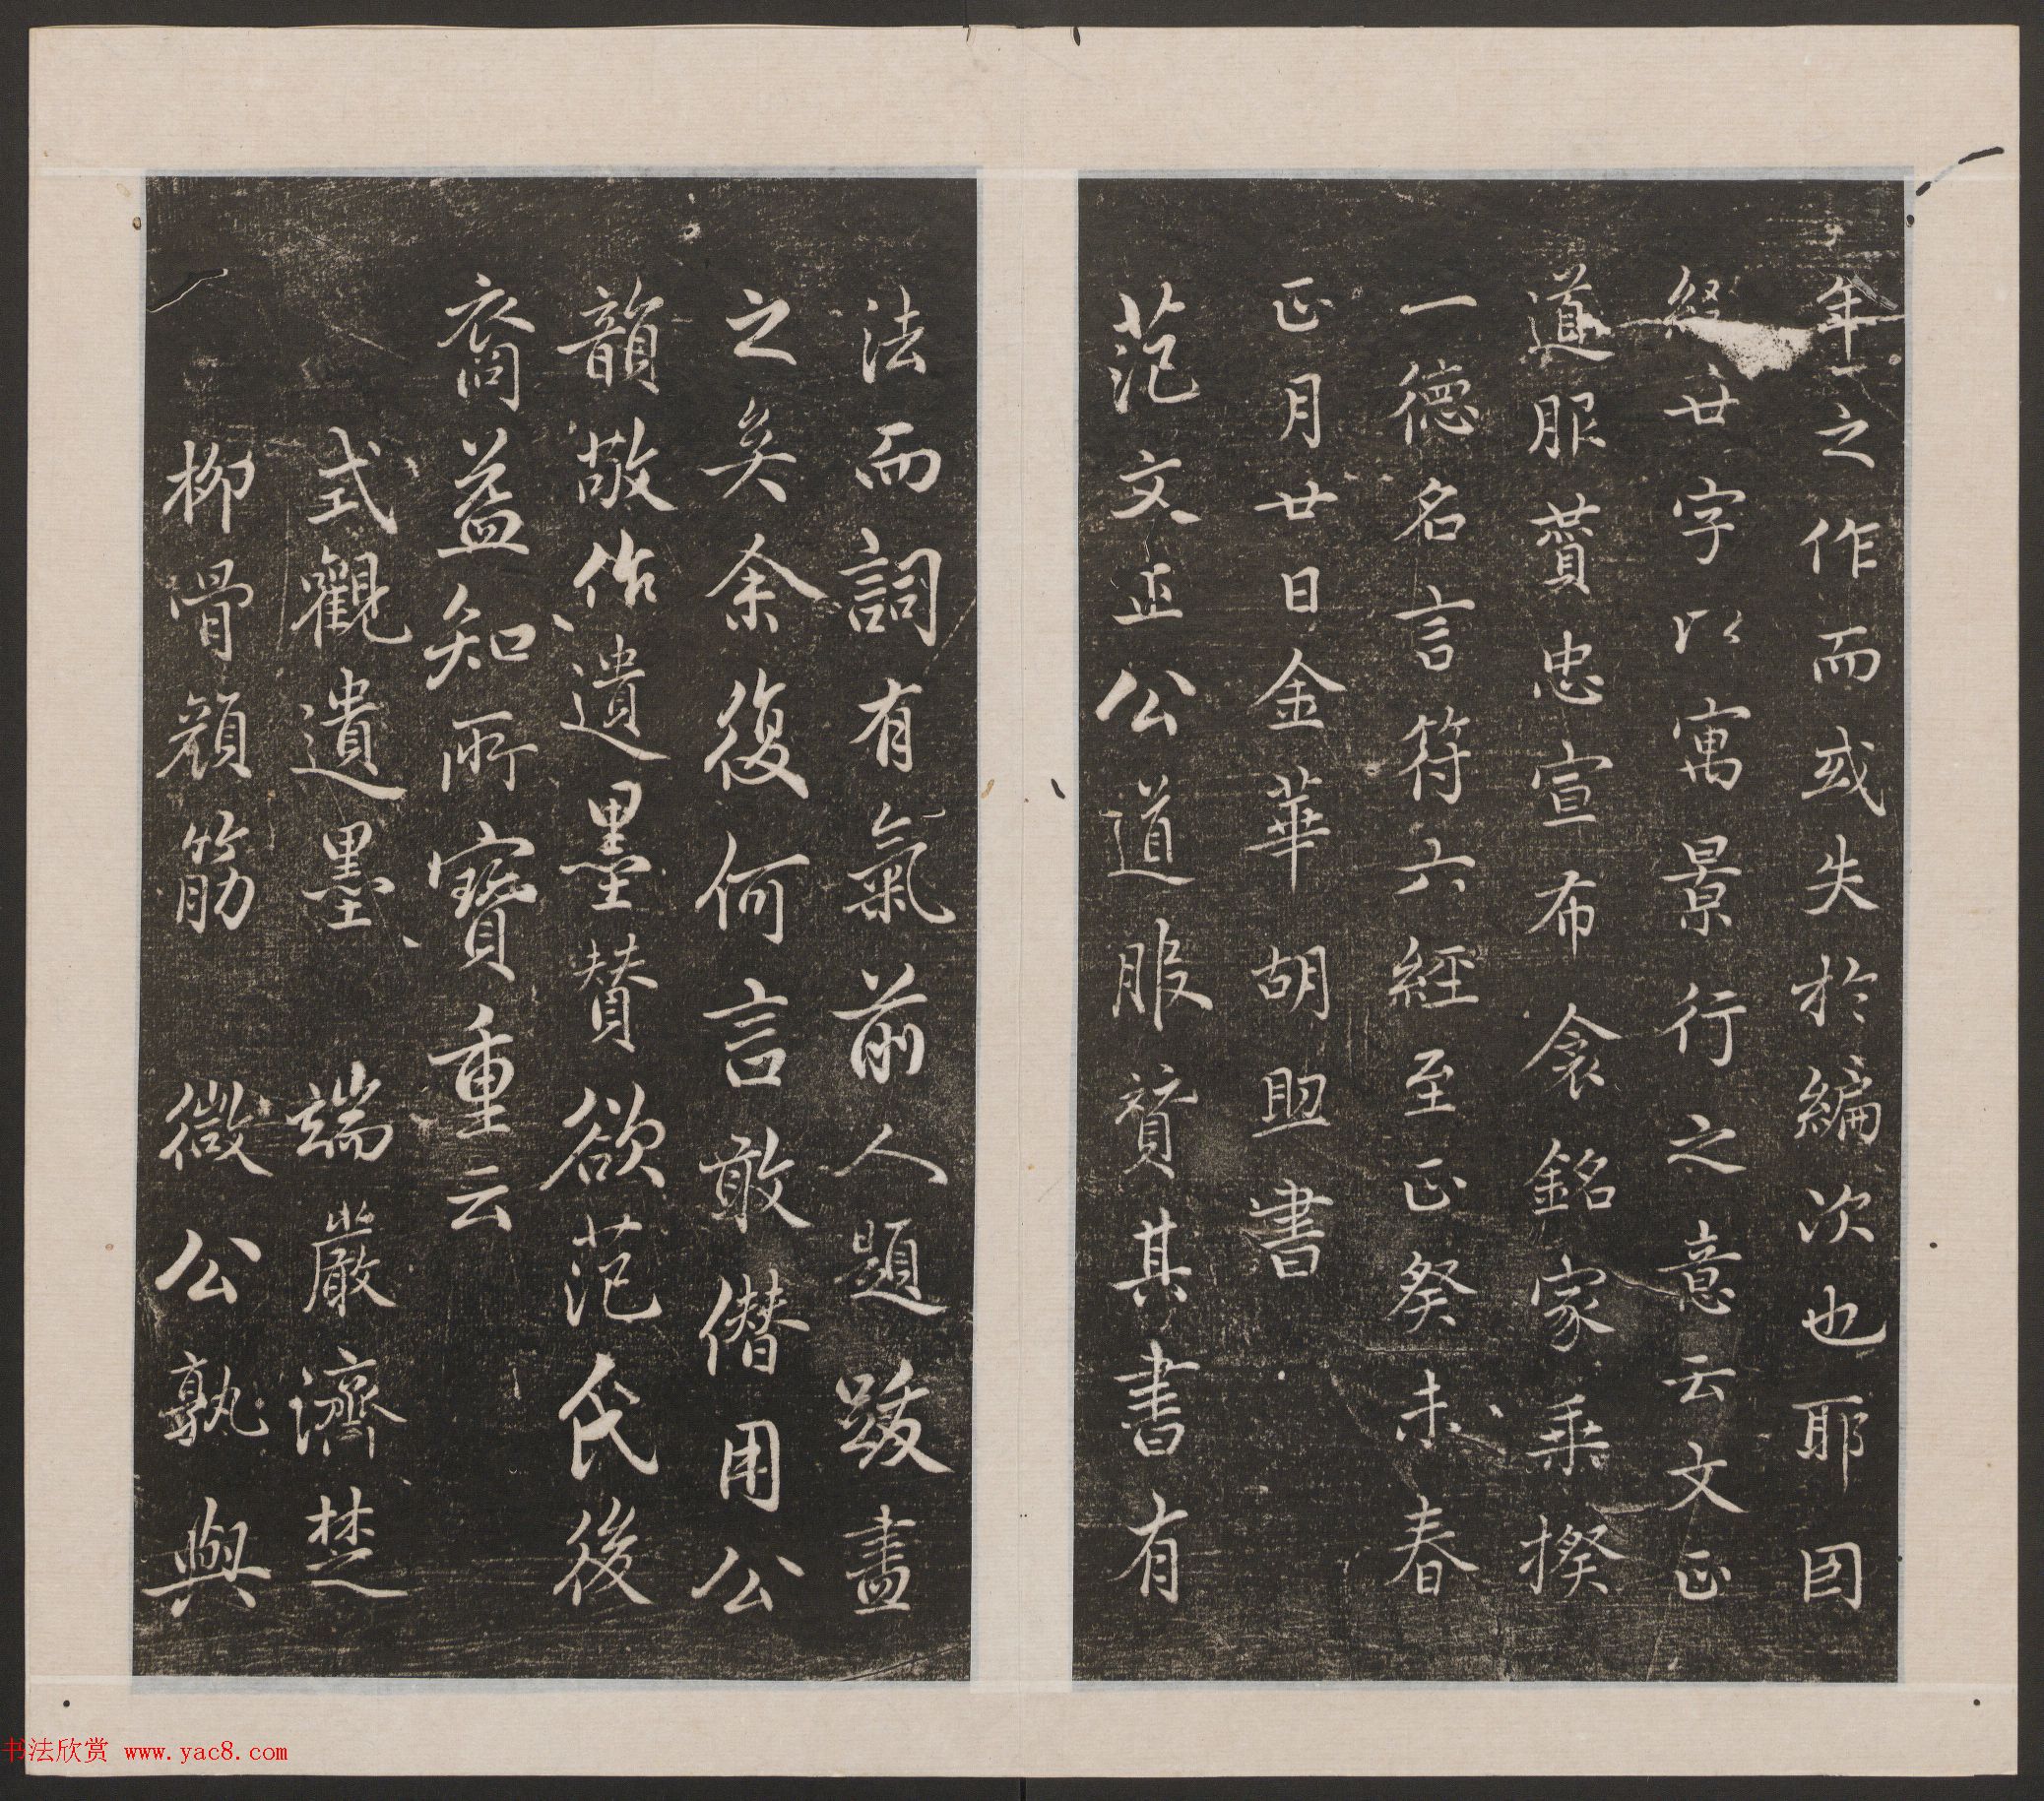 年之作而或失於編次也耶因
綴廿字以寓景行之意云文正
道服贊忠宣布衾銘家乘揆
一德名言符六經至正癸未春
正月廿日金華胡助書
范文正公道服贊其書有
法而詞有氣前人題跋盡
之矣余復何言敢僭用公
韻敬作遺墨贊欲范氏後
裔益知所寶重云
式觀遺墨 端嚴濟楚
柳骨顏筋 微公孰與
书法欣赏 www.yac8.com